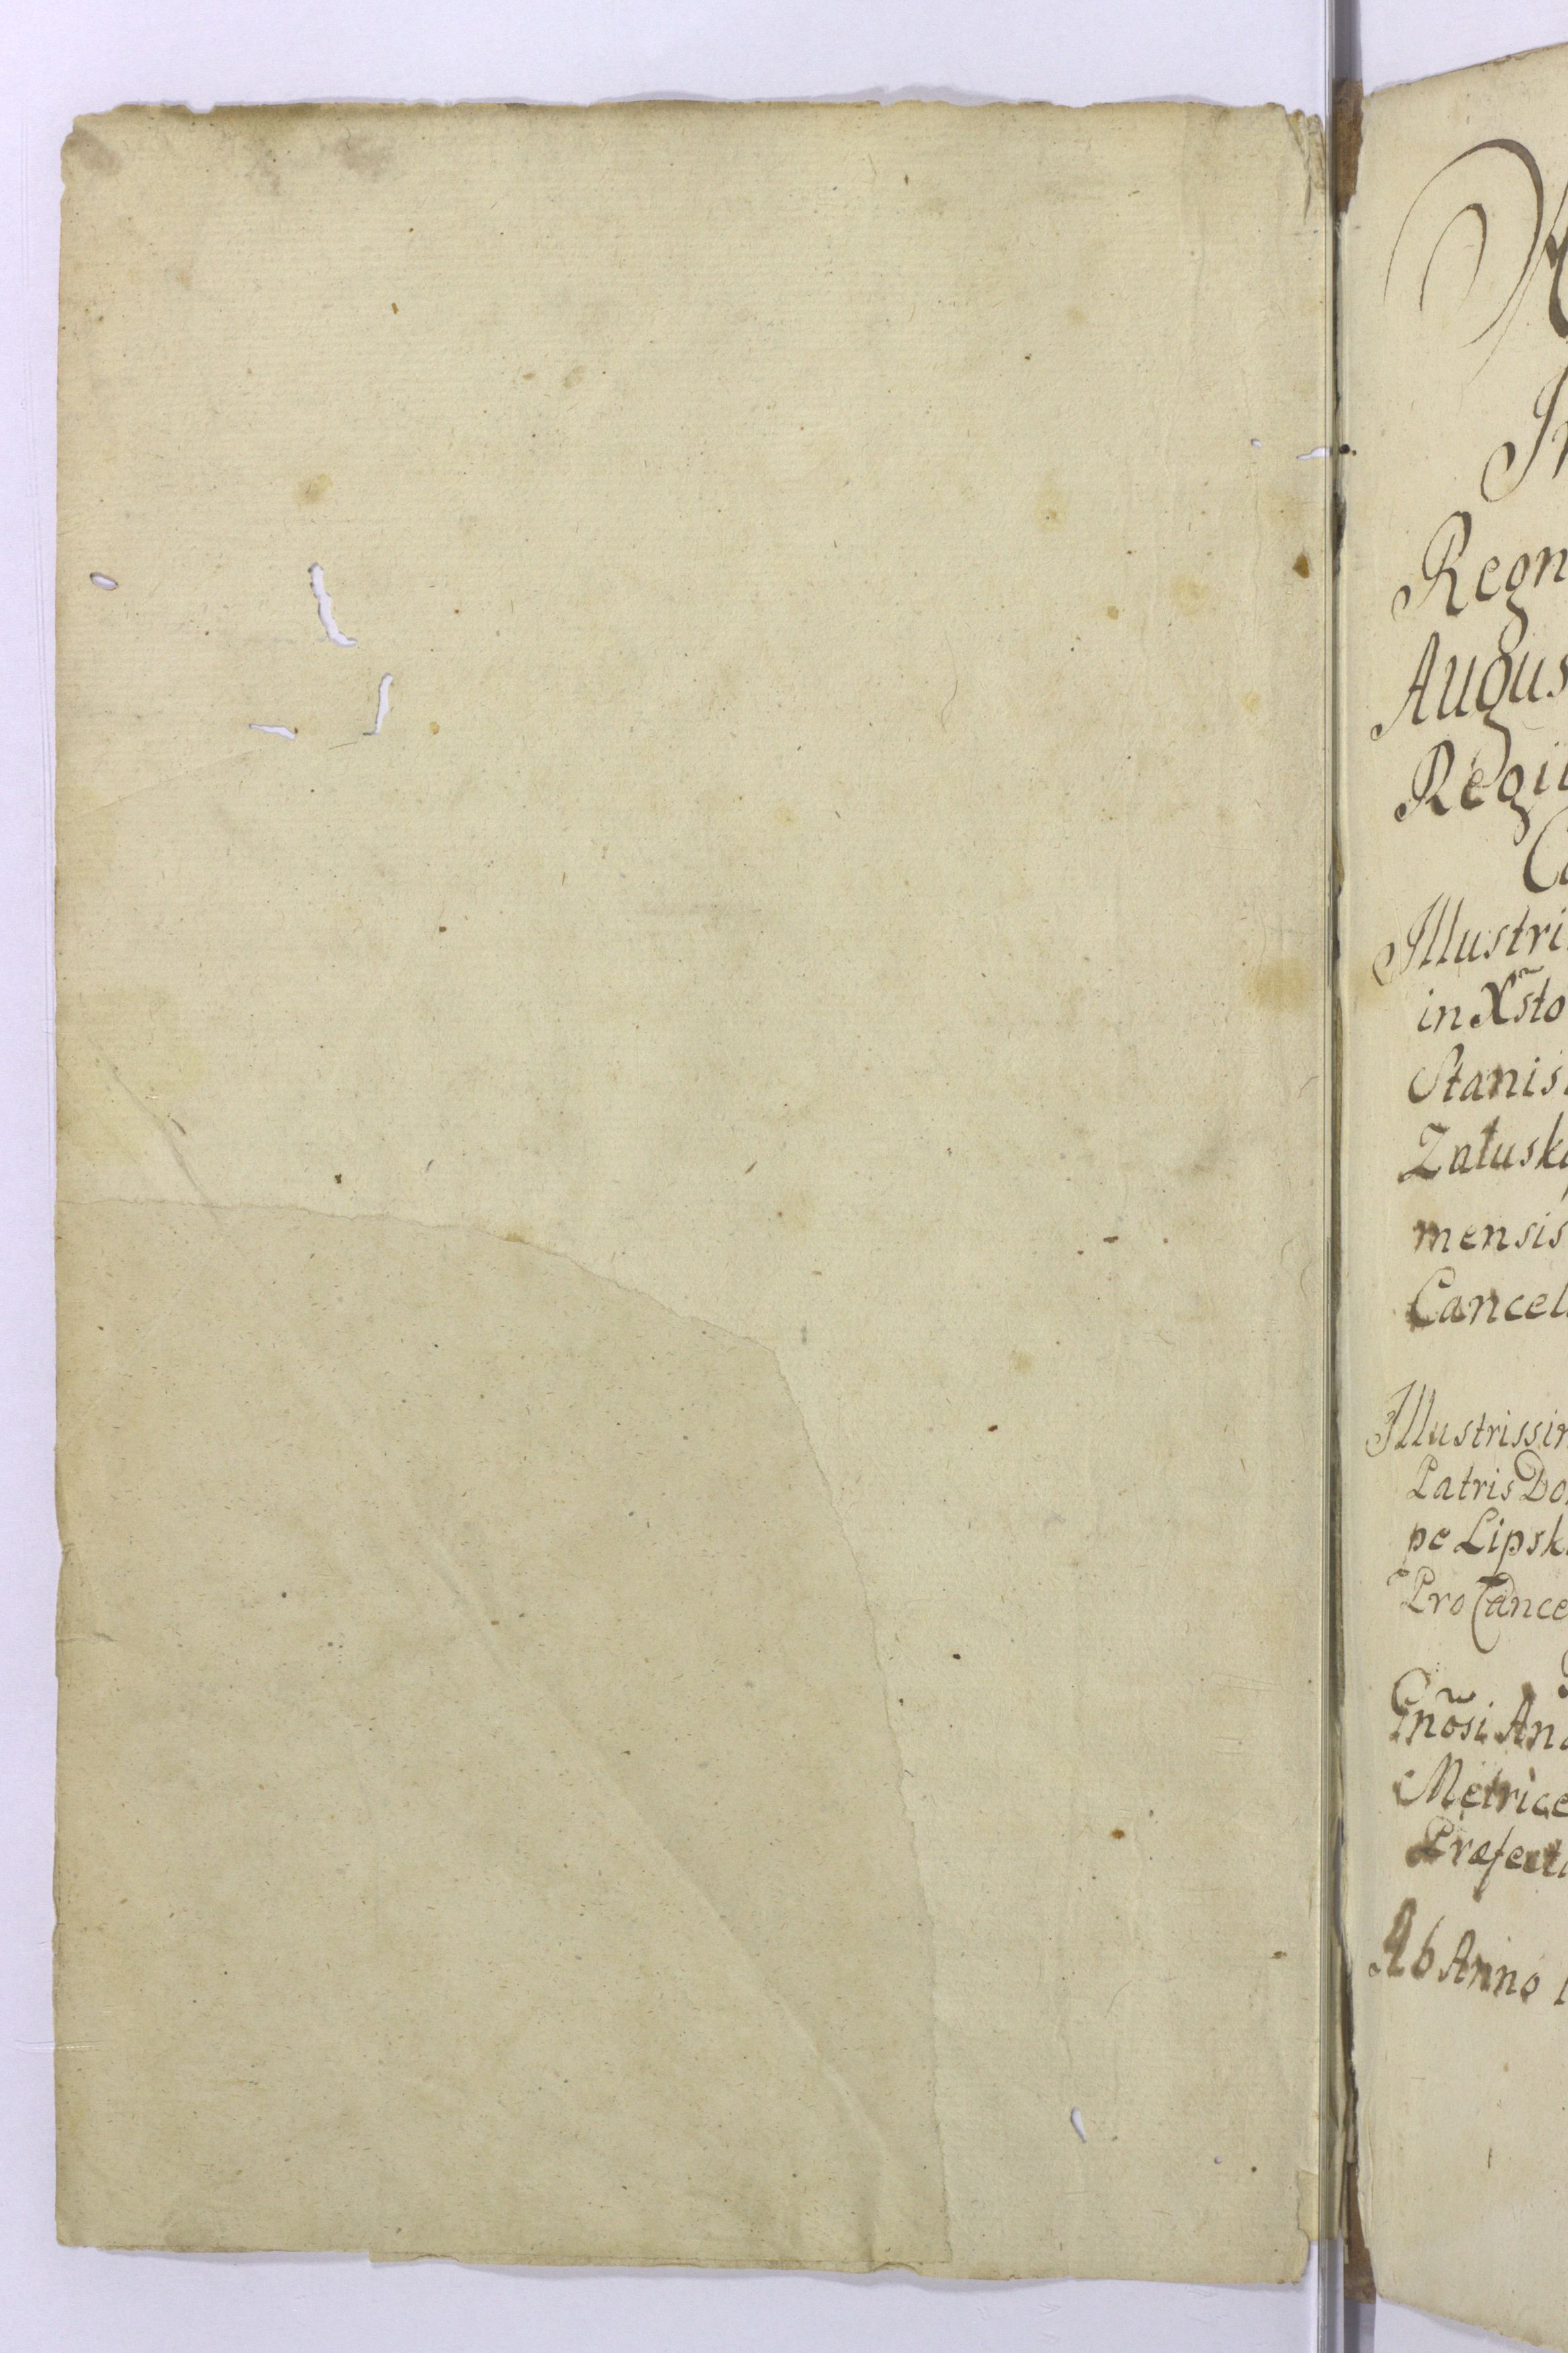 Regn
Augus
Regii
Illustri
in Xs̃to
Stanis
Załusk
mensis
Cancel
Illustrissi
Patris Do
pe Lipsk
Pro Cance
Gnõsi An
Metrice
Præfect
Ab Anno 1